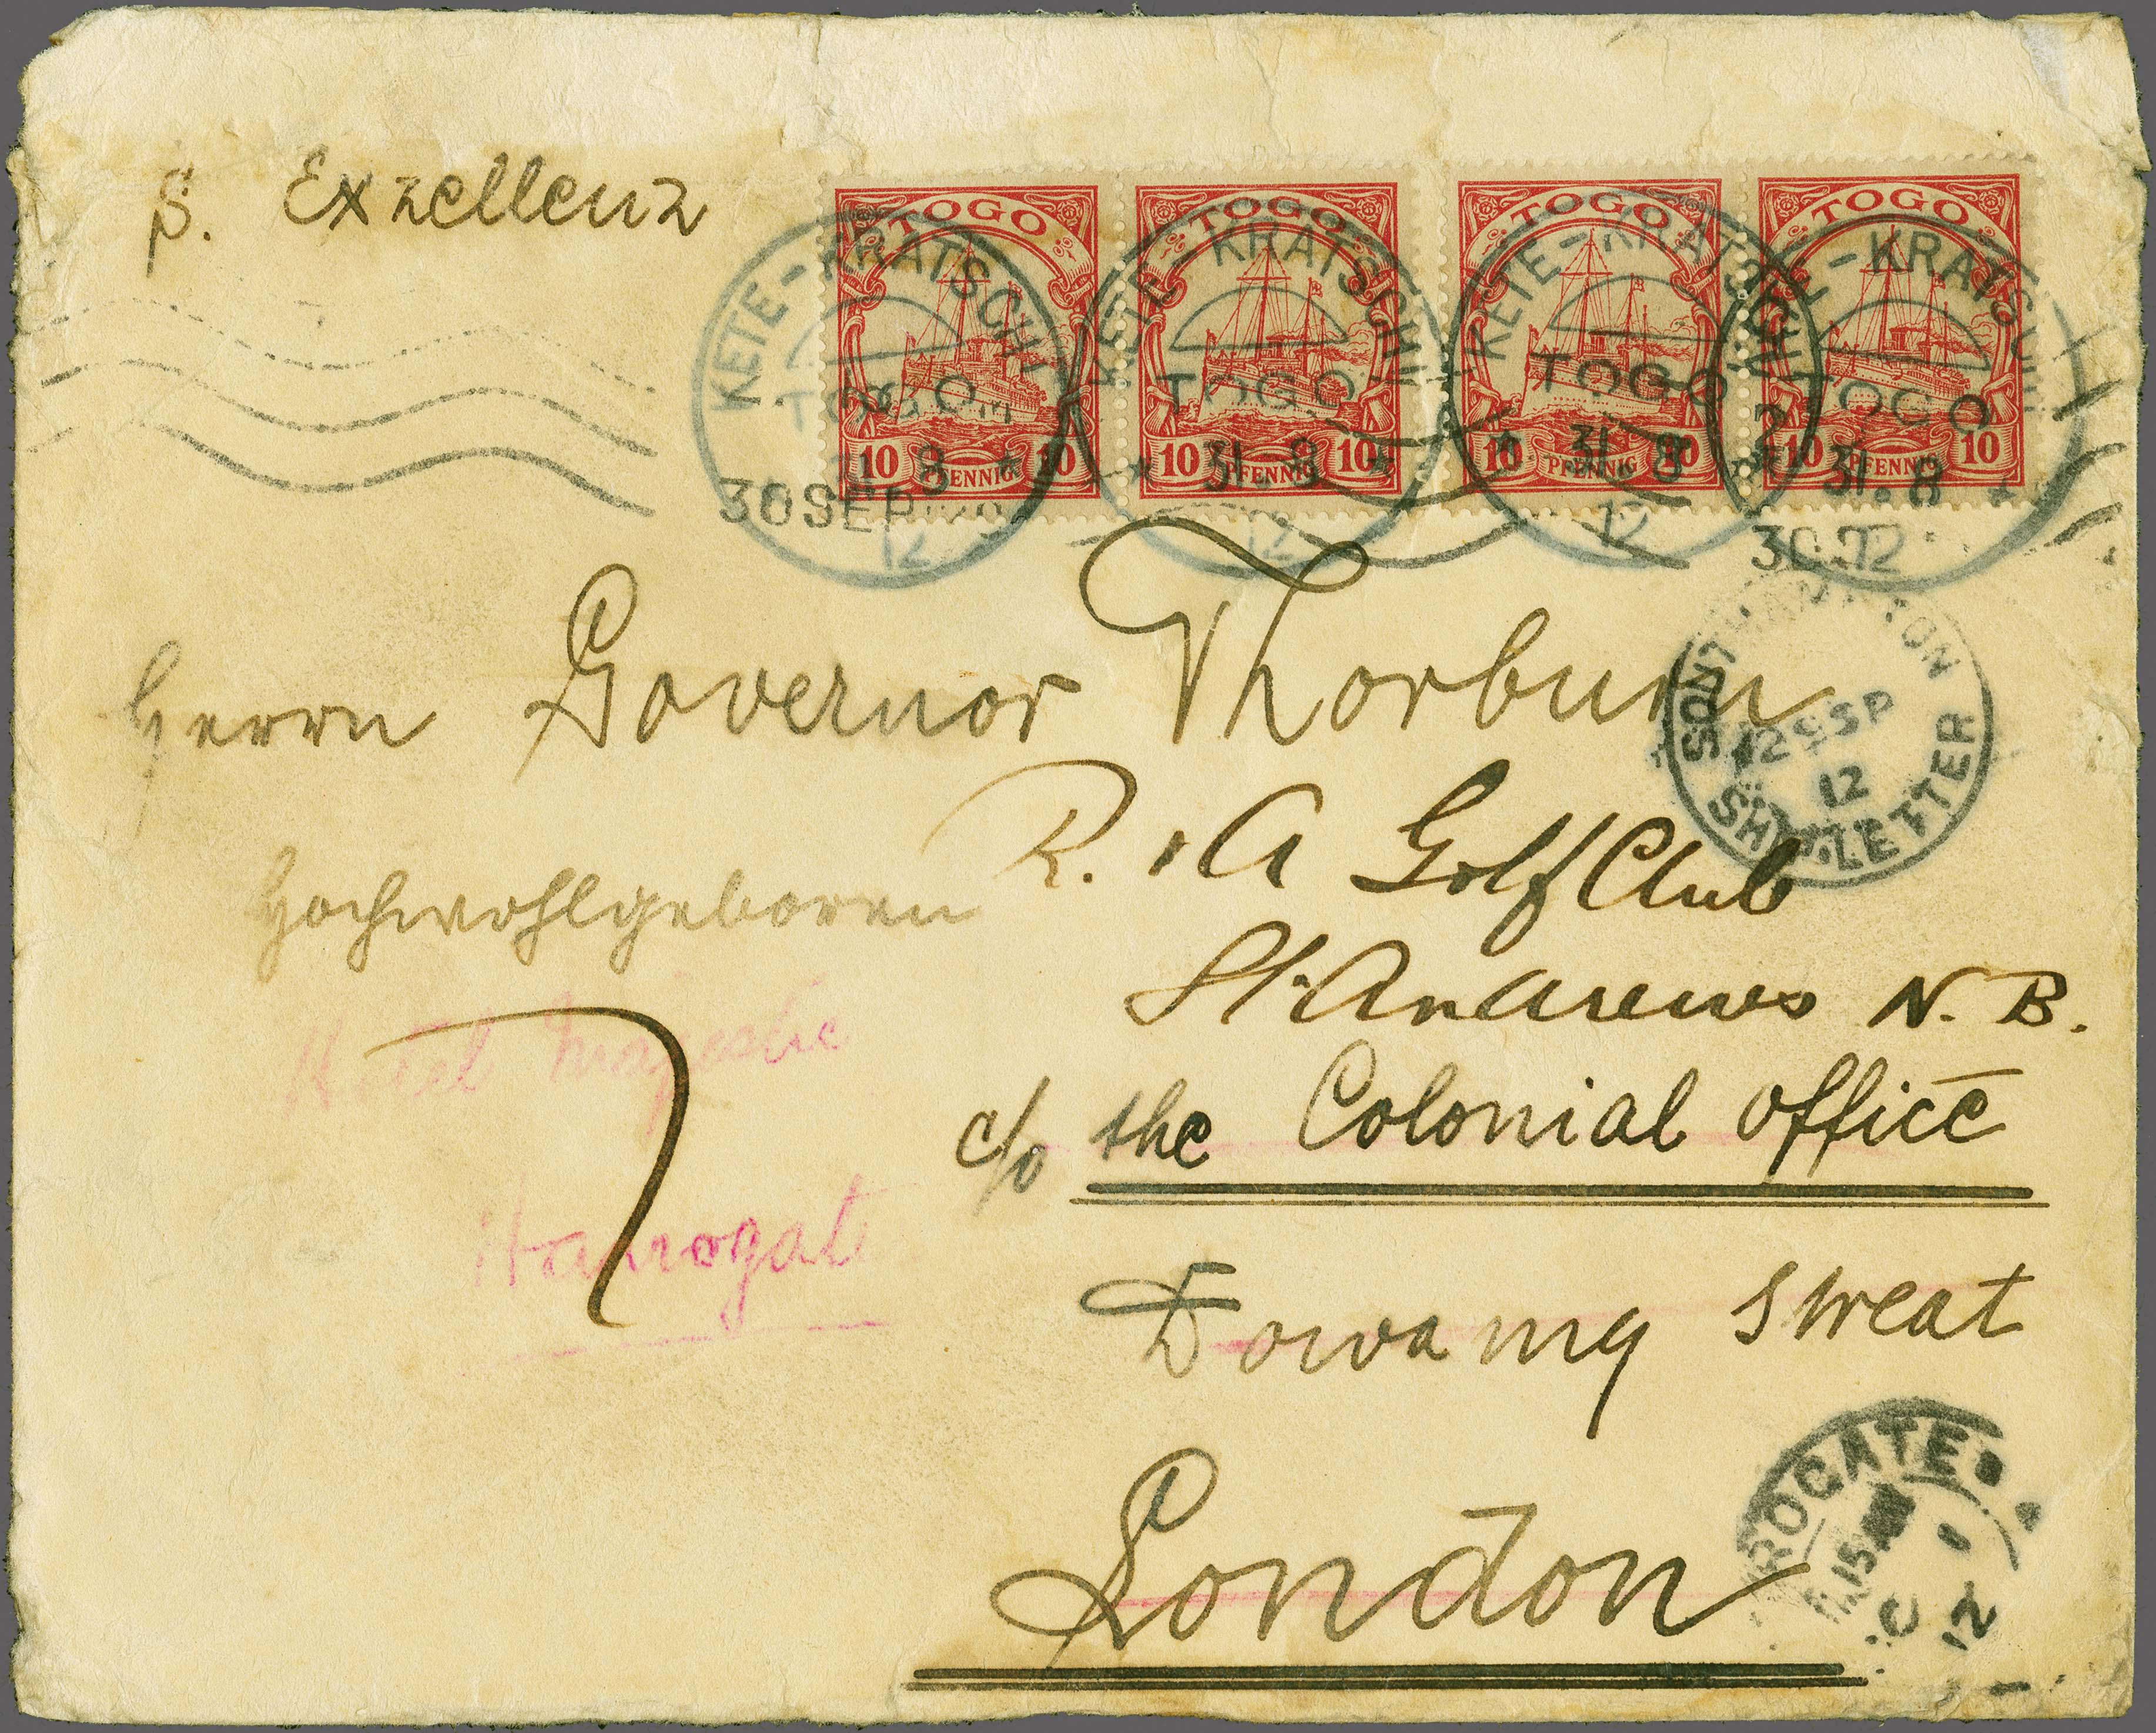 S. Exzellenz
TOGO TOGO TOGO TOGO
10 PFENNIG 10 10 PFENNIG 10 10 PFENNIG 10 10 PFENNIG 10
KETE-KRATSCHI
TOGO
31.8
12
KETE-KRATSCHI
TOGO
31.8
12
KETE-KRATSCHI
TOGO
31.8
12
KETE-KRATSCHI
TOGO
31.8
12
30 SEP
30.
Herrn Governor Thorburn
SOUTHAMPTON
SP
12
SHIP LETTER
Hochwohlgeboren
R. & A Golf Club
St. Andrews N. B.
Hotel Majestic
c/o the Colonial office
Harrogate
Dowamg streat
London
ROGATE
1
12